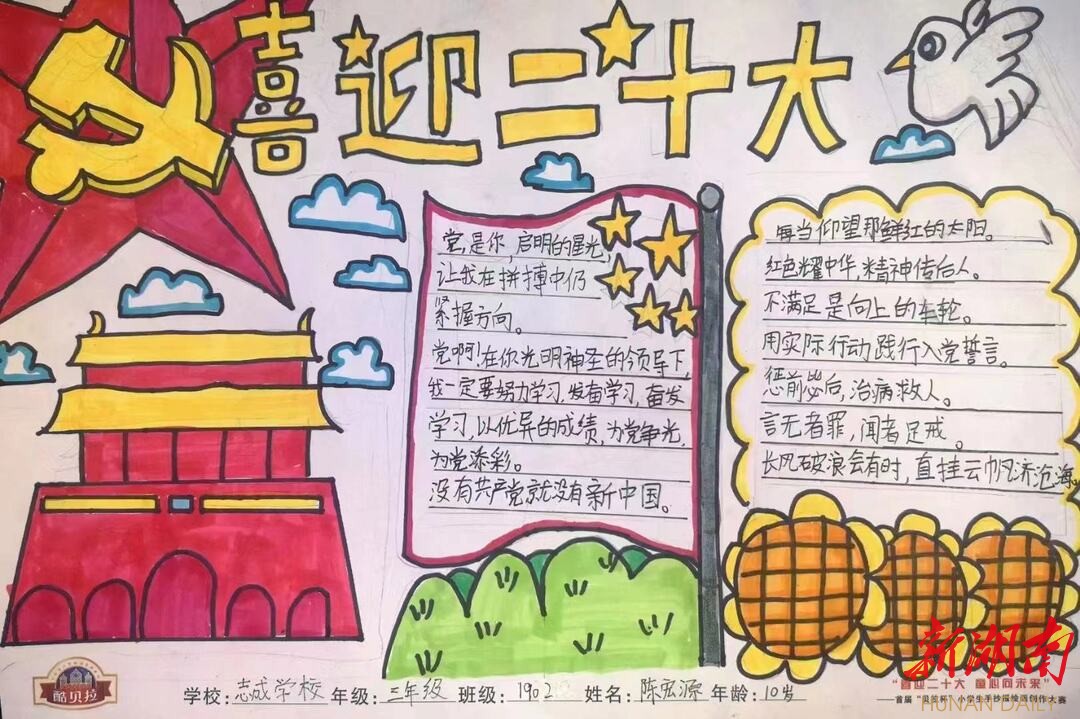 喜迎二十大
党是你,启明的星光,
让我在拼搏中仍
紧握方向。
党啊!在你光明神圣的领导下,
我一定要努力学习,发奋学习,奋发
学习,以优异的成绩,为党争光,
为党添彩。
没有共产党就没有新中国。
每当仰望那鲜红的太阳。
红色耀中华,精神传后人。
不满足是向上的车轮。
用实际行动践行入党誓言。
惩前毖后,治病救人。
言无者罪,闻者足戒。
长风破浪会有时,直挂云帆济沧海。
酷贝拉
学校:志成学校 年级:三年级 班级:1902 姓名:陈宏源 年龄:10岁
新湖南
"喜迎二十大 童心向未来"
HUNAN DAILY